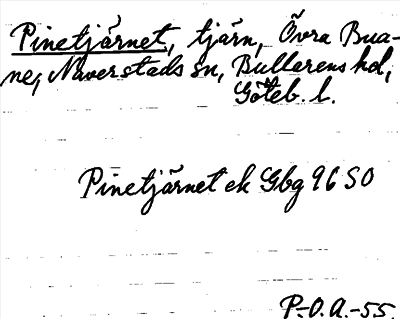 Pinetjärnet, tjärn, Övra Bua-
ne, Naverstads sn, Bullarens hd,
Göteb. l.
Pinetjärnet ek Gbg 96 SO
P.-O.A.-55.